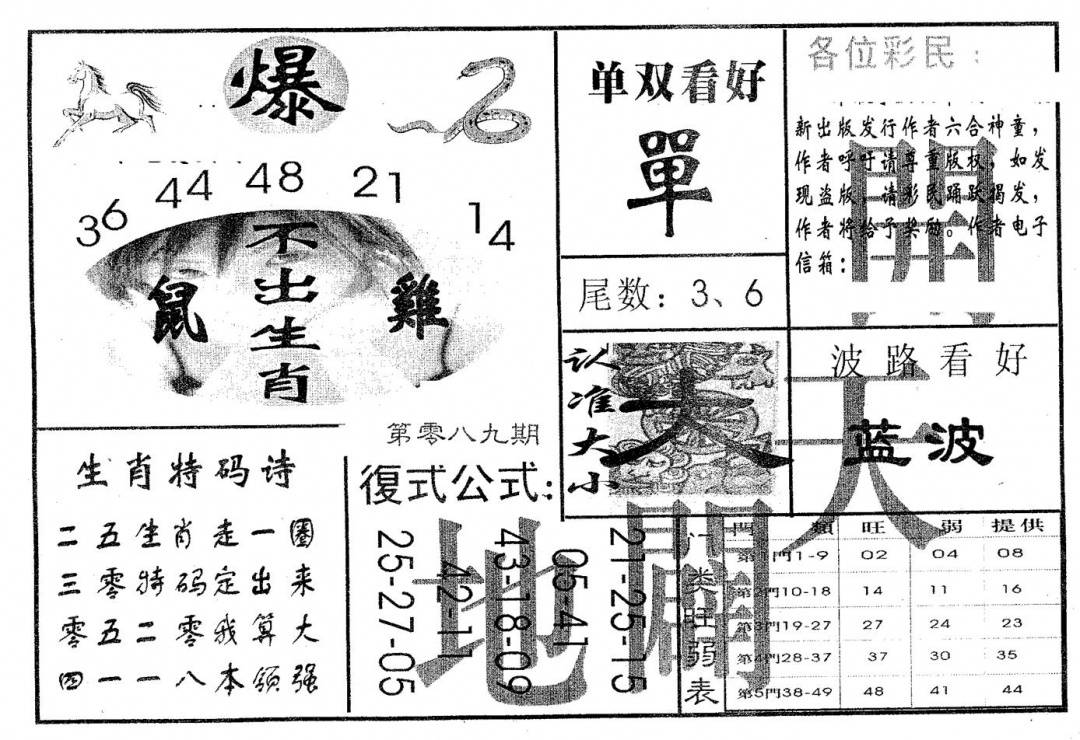 爆
36 44 48 21 14
不出生肖
鼠
雞
第零八九期
单双看好
單
尾数：3、6
各位彩民：
新出版发行作者六合神童，
作者呼吁请尊重版权，如发
现盗版，请彩民踊跃揭发，
作者将给予奖励。作者电子
信箱：
認准大小
大
波路看好
蓝波
生肖特码诗
二五生肖走一圈
三零特码定出来
零五二零我算大
四一一八本领强
復式公式：
25-27-05
42-11
43-18-09
05-41
21-25-15
天
開
地
闢
门类旺弱表
門類 旺 弱 提供
第1門1-9 02 04 08
第2門10-18 14 11 16
第3門19-27 27 24 23
第4門28-37 37 30 35
第5門38-49 48 41 44